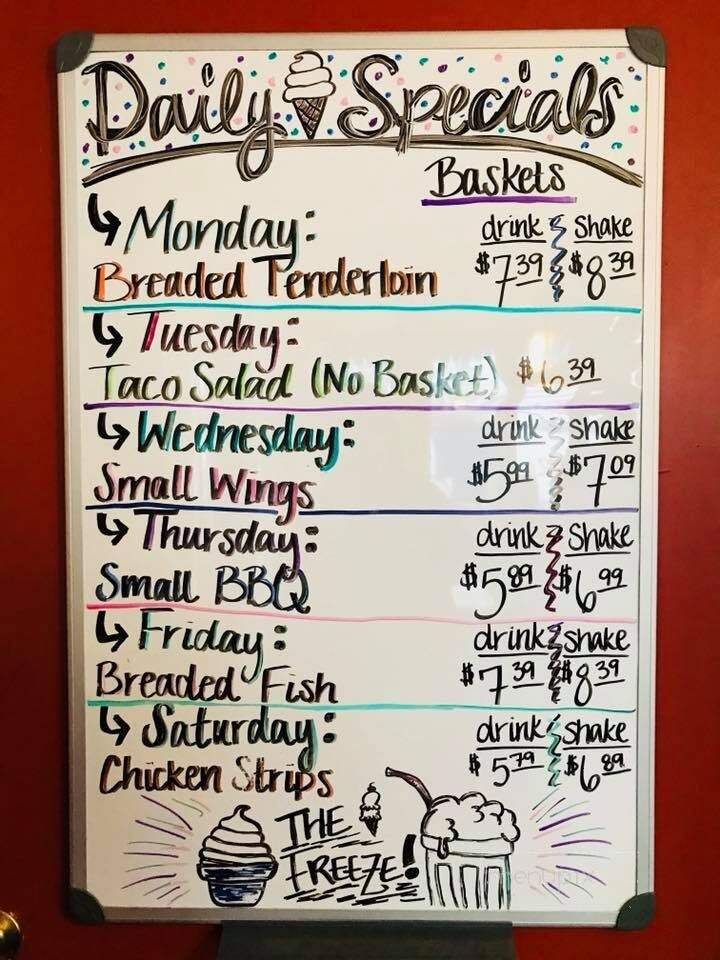 Daily Specials
Baskets
↳ Monday: drink Shake
Breaded Tenderloin $7.39 $8.39
↳ Tuesday:
Taco Salad (No Basket) $6.39
↳ Wednesday: drink Shake
Small Wings $5.99 $7.09
↳ Thursday: drink Shake
Small BBQ $5.89 $6.99
↳ Friday: drink Shake
Breaded Fish $7.39 $8.39
↳ Saturday: drink Shake
Chicken Strips $5.79 $6.89
THE
FREEZE!